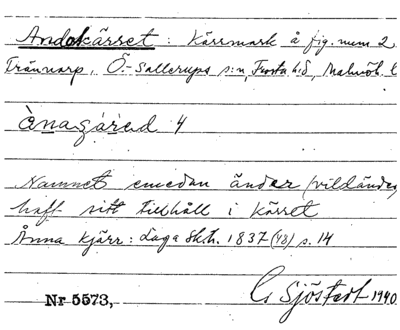 Andakärret: Kärrmark å fig. num 2
Tränvarp, Ö. Sallerups s:n, Frosta h:d, Malmöh. l
ànagárad 4
Namnet emedan änder (vildänder)
haft sitt tillhåll i kärret
Änna kjärr: Laga skh. 1837 (43) s. 14
Nr 5573,
G Sjöstedt 1940